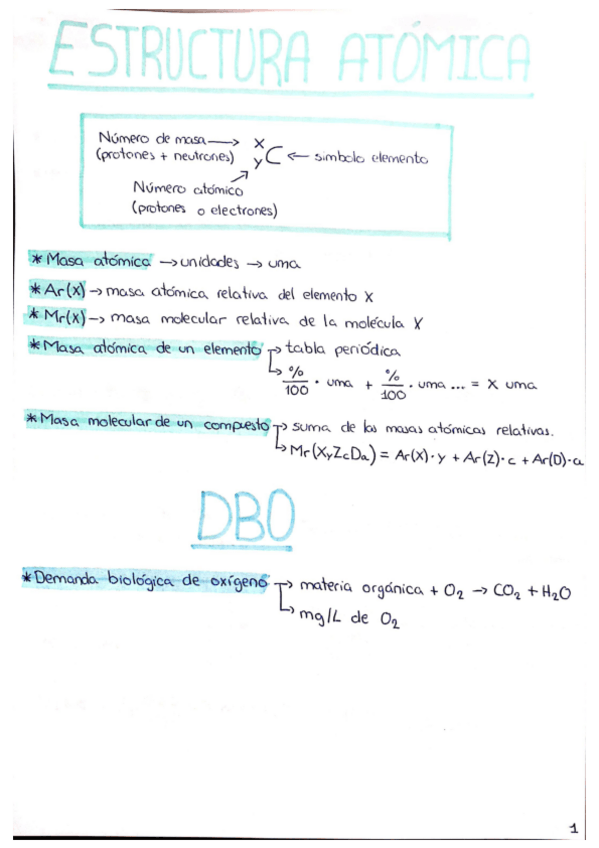 ESTRUCTURA ATÓMICA
Número de masa → X
(protones + neutrones) yC ← símbolo elemento
Número atómico
(protones o electrones)
* Masa atómica → unidades → uma
* Ar(X) → masa atómica relativa del elemento X
* Mr(X) → masa molecular relativa de la molécula X
* Masa atómica de un elemento → tabla periódica
→ %/100 · uma + %/100 · uma ... = X uma
* Masa molecular de un compuesto → suma de las masas atómicas relativas.
→ Mr(XyZcDa) = Ar(X)·y + Ar(Z)·c + Ar(D)·a
DBO
* Demanda biológica de oxígeno → materia orgánica + O₂ → CO₂ + H₂O
→ mg/L de O₂
1